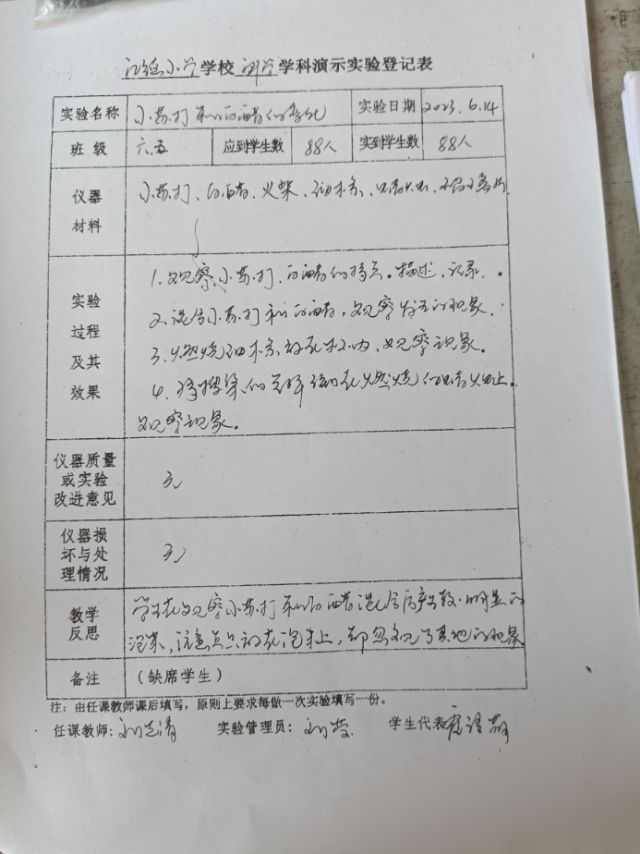 小学学校 科学学科演示实验登记表
实验名称 小苏打和白醋的变化 实验日期 2023.6.14
班 级 六.五 应到学生数 88人 实到学生数 88人
仪器
材料
小苏打、白醋、火柴、细木条、
实验
过程
及其
效果
1.观察小苏打、白醋的特点。描述、记录。
2.混合小苏打和白醋,观察发生的现象。
3.燃烧细木条放在杯内,观察现象。
4. 燃烧的 火上。
观察现象。
仪器质量
或实验
改进意见
无
仪器损
坏与处
理情况
无
教学
反思
学生在观察小苏打和白醋混合后产生的
泡沫,注意点只放在泡沫上,却忽视了其他的现象
备注 (缺席学生)
注:由任课教师课后填写,原则上要求每做一次实验填写一份。
任课教师: 实验管理员: 学生代表